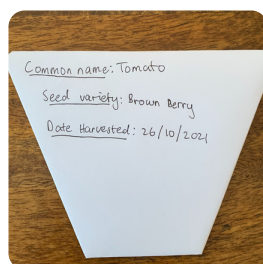 Common name: Tomato
Seed variety: Brown Berry
Date Harvested: 26/10/2021